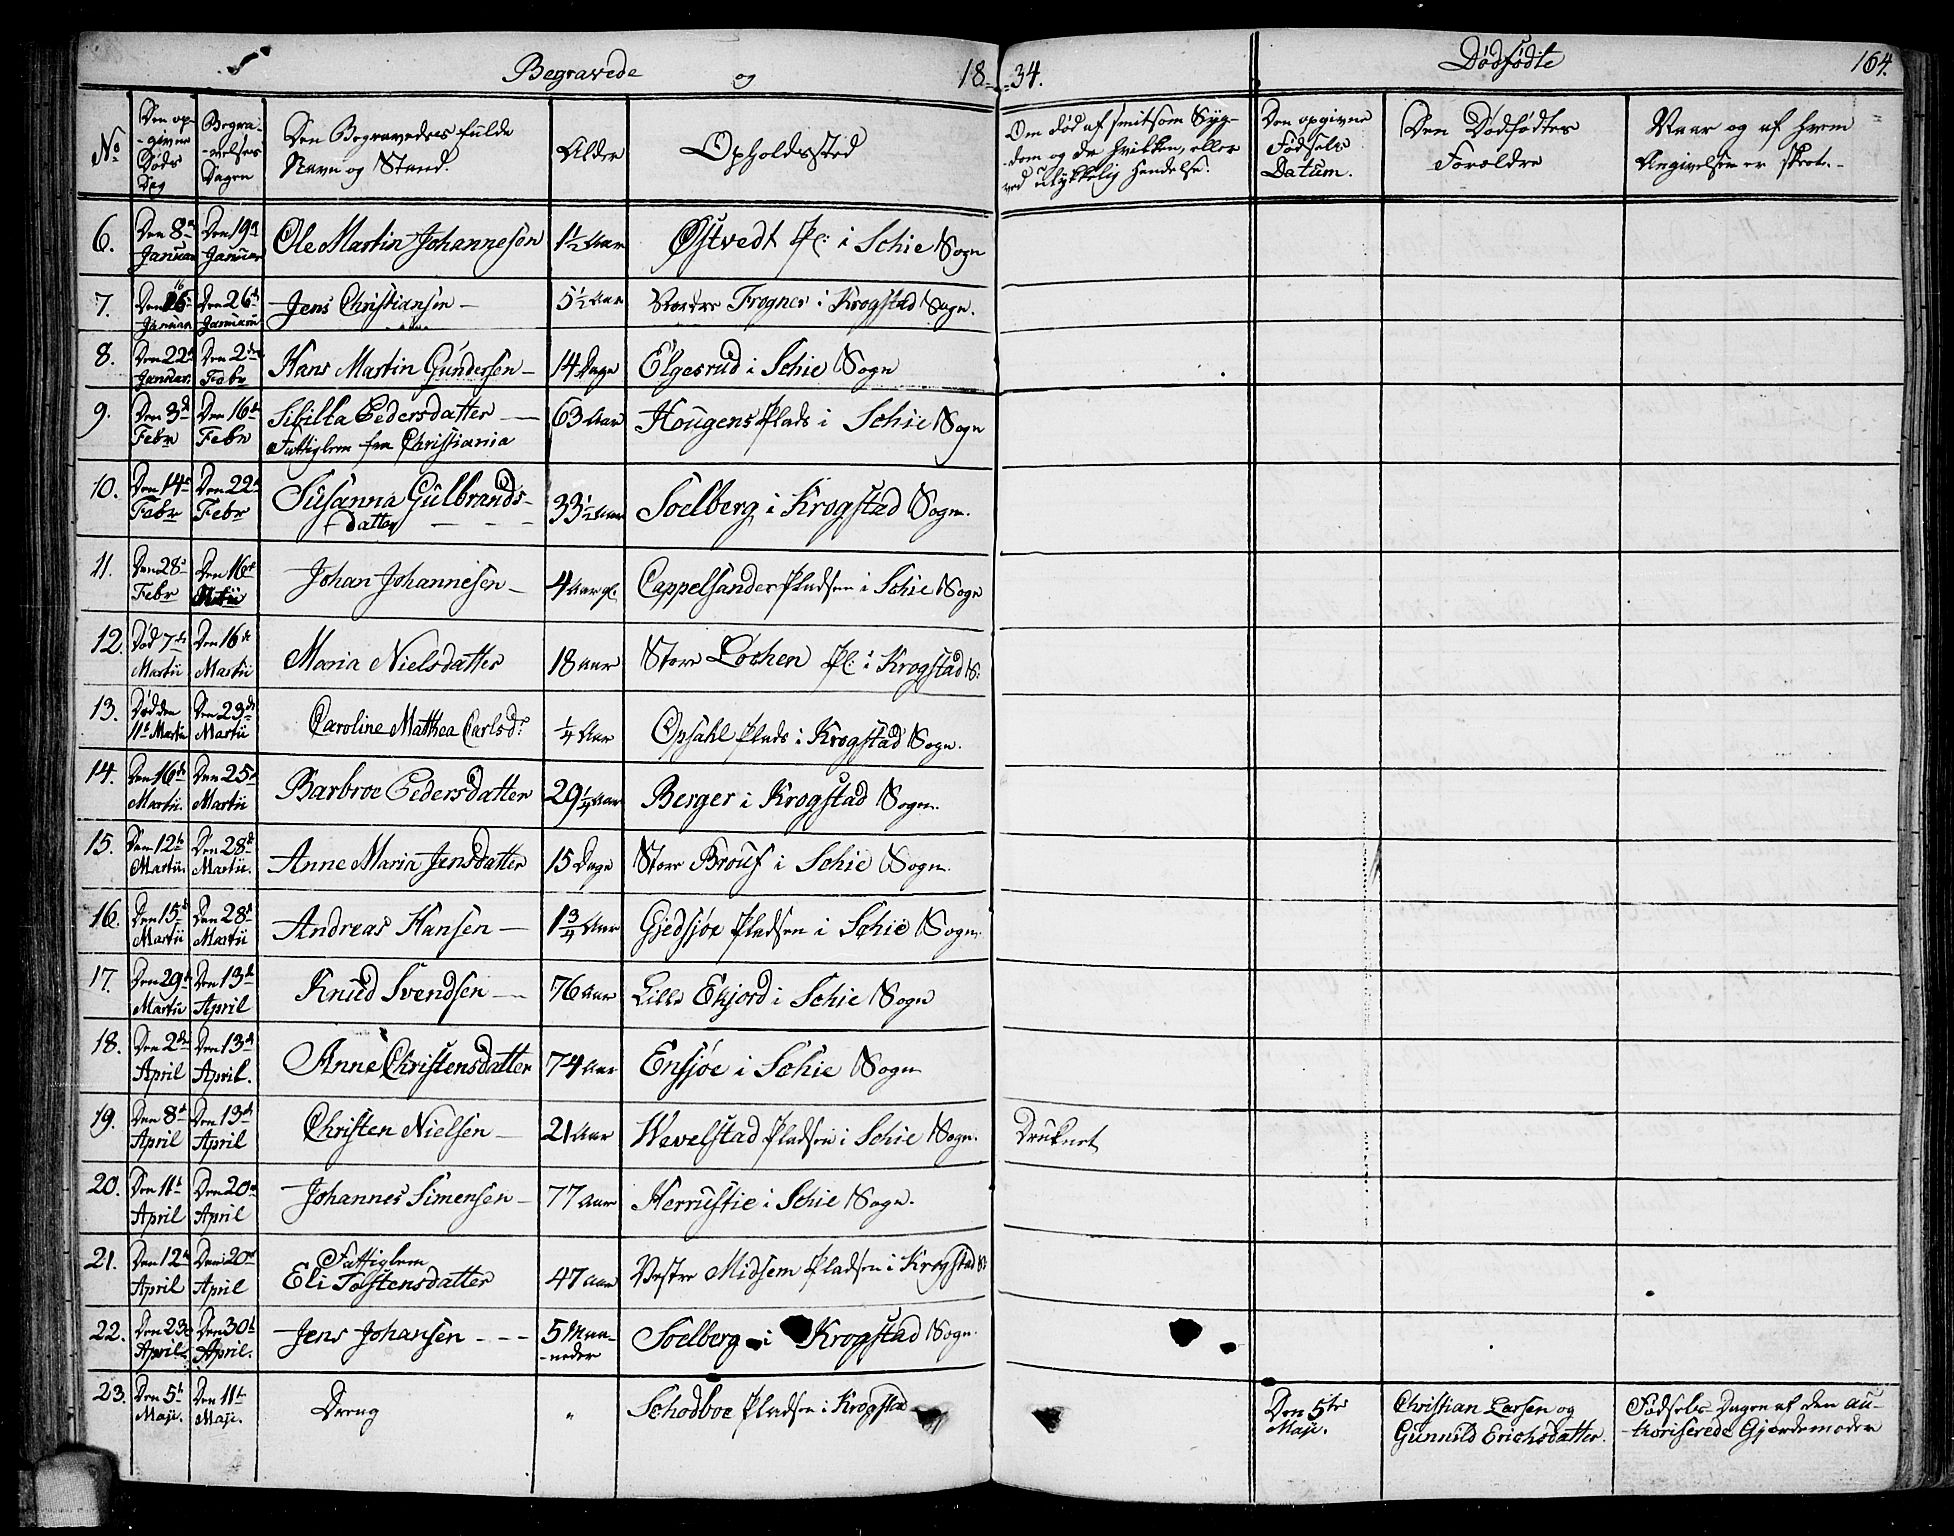 Begravede og 18-34. Dødfødte 164.
No
Den op-
-givne
Døds
Dag
Begra-
-velses
Dagen
Den Begravedes fulde
Navn og Stand.
Alder
Opholdssted
Om død af smitsom Syg-
-dom og da hvilken, eller
ved ulykkelig Hendelse.
Den opgivne
Fødsels
Datum.
Den Dødfødtes
Forældre
Naar og af hvem
Angivelsen er skeet.
6. Den 8de Januar Den 19de Januar Ole Martin Johannesen 1½ Aar Østvedt Pl: i Schie Sogn
7. Den 16 Januar Den 26de Januari Jens Christiansen 5½ Aar Nordre Frogner i Krogstad Sogn.
8. Den 22de Januar. Den 2den Febr Hans Martin Gundersen 14 Dage Elgesrud i Schie Sogn
9. Den 3de Febr Den 16de Febr Sibilla Pedersdatter 63 Aar Hougens Plads i Schie Sogn
Fattiglem fra Christiania
10. Den 14de Febr Den 22de Febr Susanna Gulbrands- 33½ Aar Soelberg i Krogstad Sogn.
datter
11. Den 28de Febr Den 16de Martii Johan Johannesen 4 Aar gl. Cappelsander Pladsen i Schie Sogn
12. Død 7de Martii Den 16de Martii Maria Nielsdatter 18 Aar Store Lochen Pl: i Krogstad S:
13. Død den 11te Martii Den 23de Martii Caroline Mathea Carlsd: ¼ Aar Opsahl Plads i Krogstad Sogn.
14. Den 16de Martii. Den 25de Martii Barbroe Pedersdatter 29¼ Aar Berger i Krogstad Sogn.
15. Den 12te Martii. Den 28de Martii. Anne Maria Jensdatter 15 Dage Store Brouf i Schie Sogn.
16. Den 15de Martii Den 28de Martii Andreas Hansen 1¾ Aar Gjedsjøe Pladsen i Schie Sogn.
17. Den 29de Martii Den 13de April Knud Svendsen 76 Aar Lille Ekjord i Schie Sogn
18. Den 2den April Den 13de April. Anne Christensdatter 74 Aar Ensjøe i Schie Sogn
19. Den 8de April Den 13de April Christen Nielsen 21 Aar Wevelstad Pladsen i Schie Sogn. Druknet
20. Den 11te April Den 20de April Johannes Simensen 77 Aar Herrustie i Schie Sogn.
21. Den 12te April Den 20de April Fattiglem
Eli Tostensdatter 47 Aar Vestre Midsem Pladsen i Krogstad S:
22. Den 23de April. Den 30te April. Jens Johansen 5 Maa-
-neder Soelberg i Krogstad Sogn.
23. Den 5te Maji. Den 11te Maji. Dreng " Schodboe Pladsen i Krogstad Den 5te
Maji. Christian Larsen og
Gunnild Erichsdatter. Fødsels Dagen af den au-
-thoriserede Gjordemoder